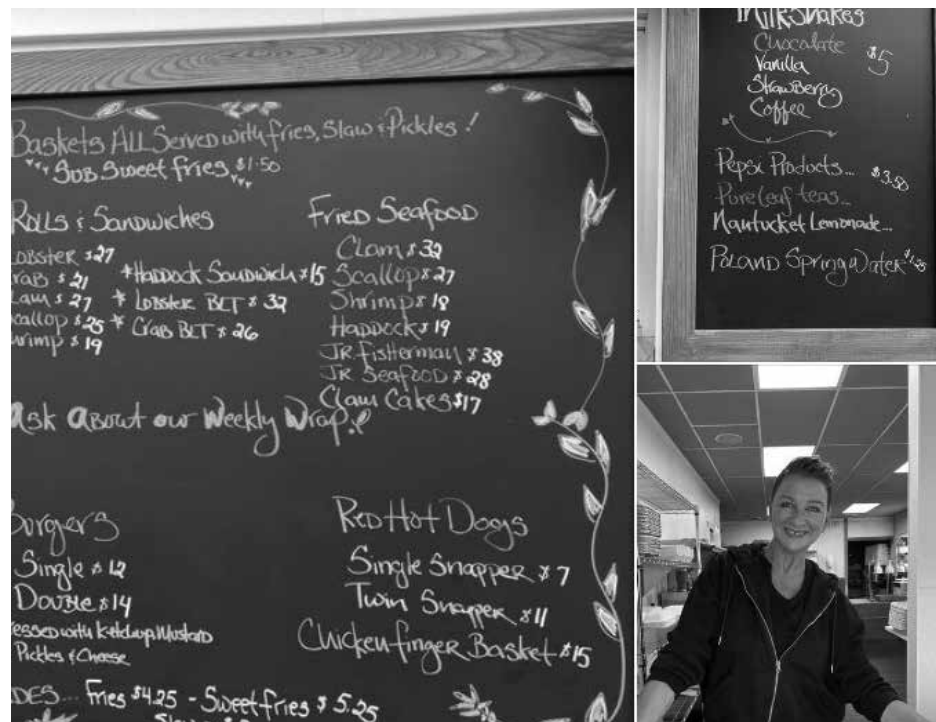 Baskets All Served with fries, Slaw & Pickles!
Sub Sweet fries $1.50
Rolls & Sandwiches
Lobster $27
Crab $21
Clam $27
Scallop $25
Shrimp $19
*Haddock Sandwich $15
* Lobster BLT $32
* Crab BLT $26
Fried Seafood
Clam $32
Scallop $27
Shrimp $18
Haddock $19
JR Fisherman $38
JR Seafood $28
Clam Cakes $17
Ask About our Weekly Wrap!
Burgers
Single $12
Double $14
essed with Ketchup Mustard
Pickles & Cheese
Red Hot Dogs
Single Snapper $7
Twin Snapper $11
Chicken finger Basket $15
DES... Fries $4.25 - Sweet fries $5.25
Milkshakes
Chocolate
Vanilla
Strawberry
Coffee
$5
Pepsi Products... $3.50
Pureleaf teas...
Nantucket Lemonade...
Poland Spring Water $1.25